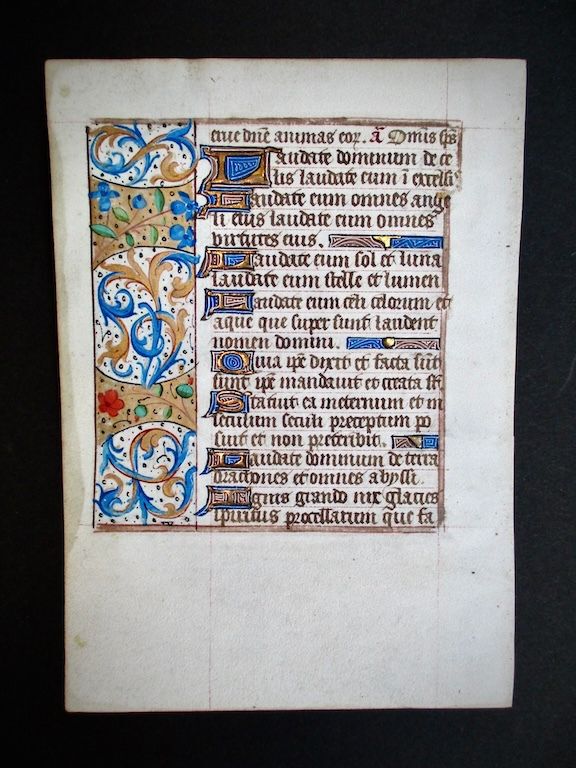 eiue dñe animas eoꝝ. ã Om̃is sp̃s
Laudate dominum de ce
lis laudate eum ĩ excelsi
Laudate eum omnes ange
li eius laudate eum omnes
virtutes eius.
Laudate eum sol et luna
laudate eum stelle et lumen
Laudate eum celi celorum et
aque que super sunt laudent
nomen domini.
Quia ip̃e dixit et facta sũt
sunt ip̃e mandavit et creata st̃
Statuit ea ineternum et in
seculum seculi preceptum po
suit et non preteribit.
Laudate dominum de terra
dracones et omnes abyssi.
Ignis grando nix glacies
spiritus procellarum que fa